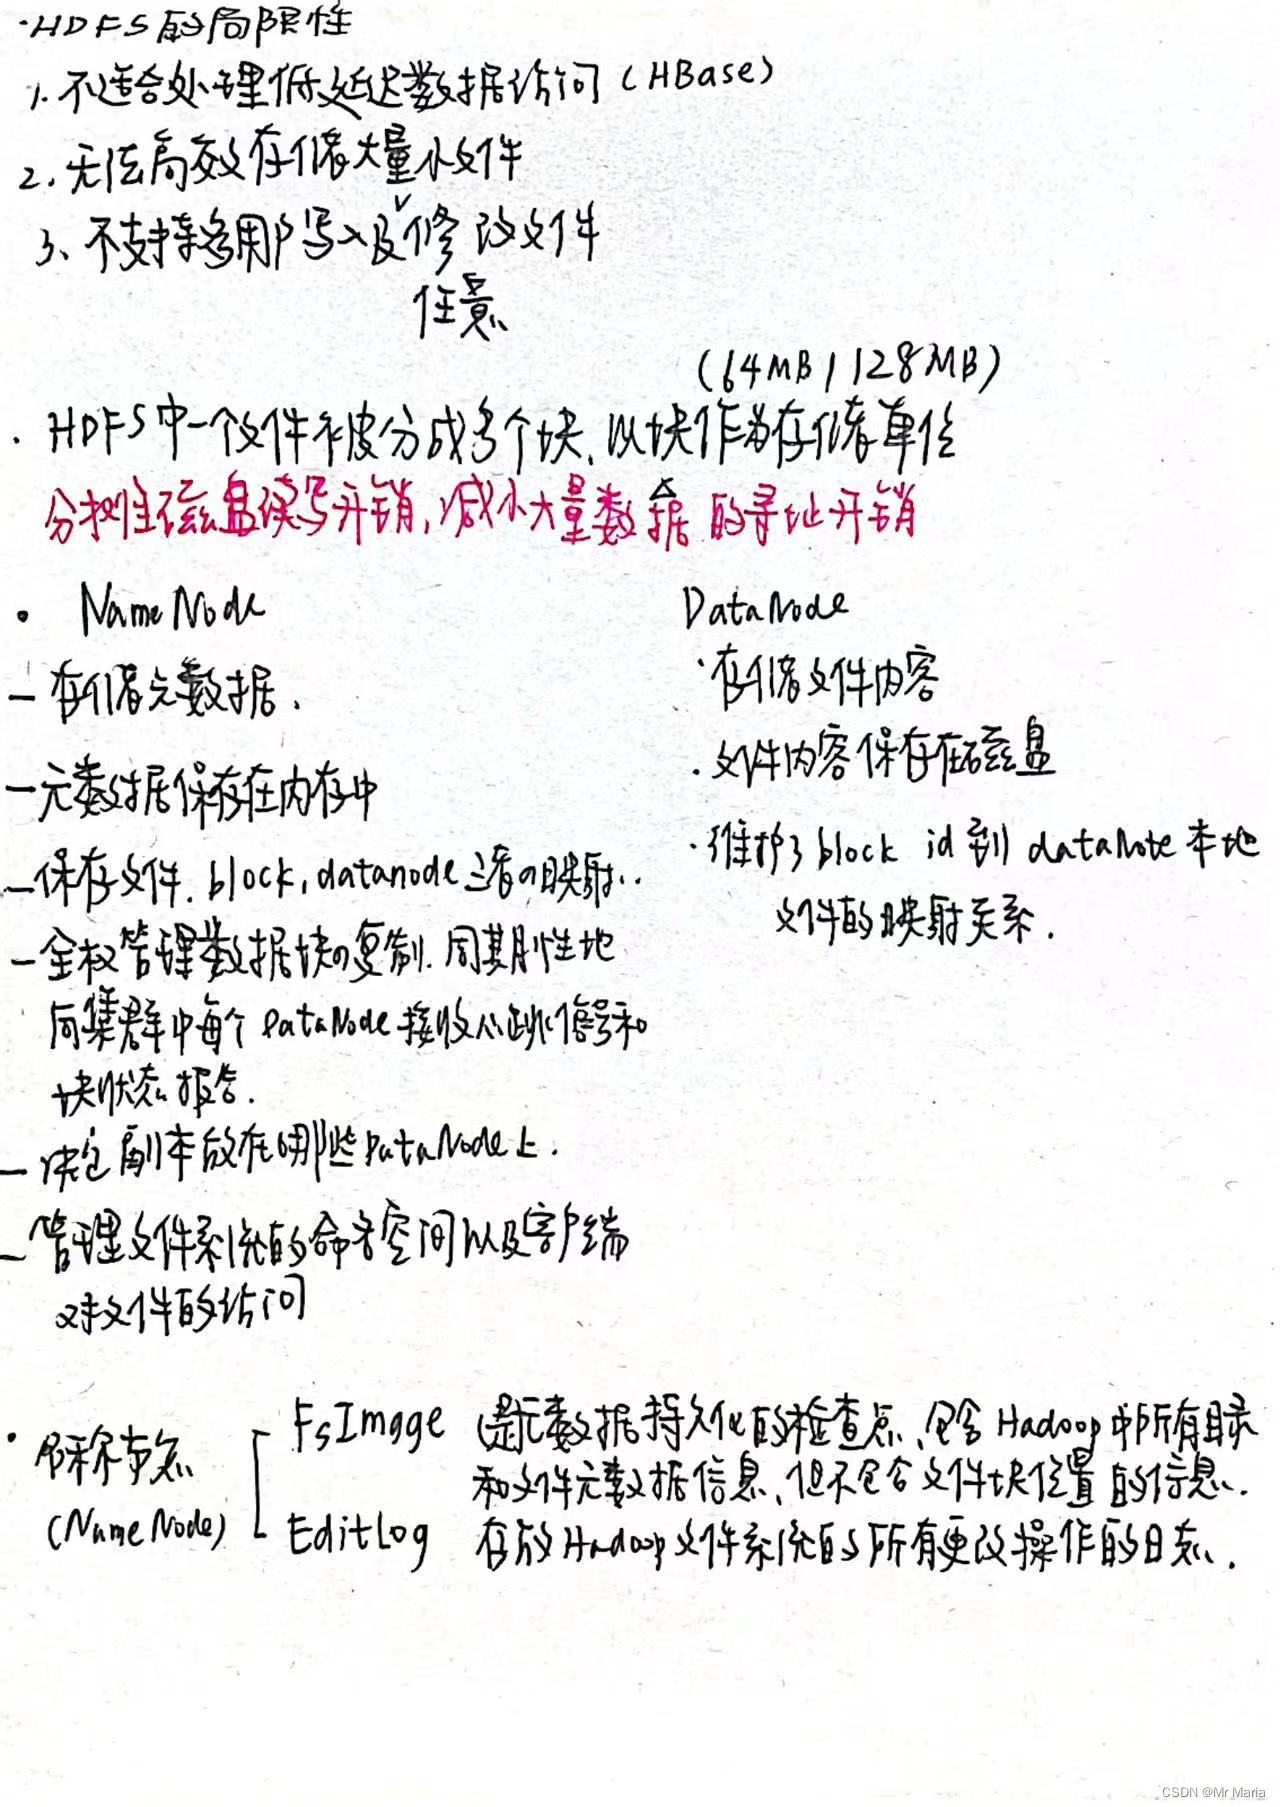 ·HDFS的局限性
1. 不适合处理低延迟数据访问(HBase)
2. 无法高效存储大量小文件
3、不支持多用户写入及∨修改文件
任意
(64MB/128MB)
· HDFS中一个文件被分成多个块,以块作为存储单位
分摊磁盘读写开销,减小大量数据的寻址开销
· NameNode
– 存储元数据.
– 元数据保存在内存中
– 保存文件.block,datanode三者の映射..
– 全权管理数据块の复制.周期性地
向集群中每个DataNode接收心跳信号和
块状态报告.
– 决定副本放在哪些DataNode上.
– 管理文件系统的命名空间以及客户端
对文件的访问
DataNode
·存储文件内容
·文件内容保存在磁盘
·维护了block id到dataNote本地
文件的映射关系.
· 名称节点
(NameNode)
FsImage 是元数据持久化的检查点,包含Hadoop中所有目录
和文件元数据信息,但不包含文件块位置的信息.
EditLog 存放Hadoop文件系统的所有更改操作的日志.
CSDN @Mr Maria